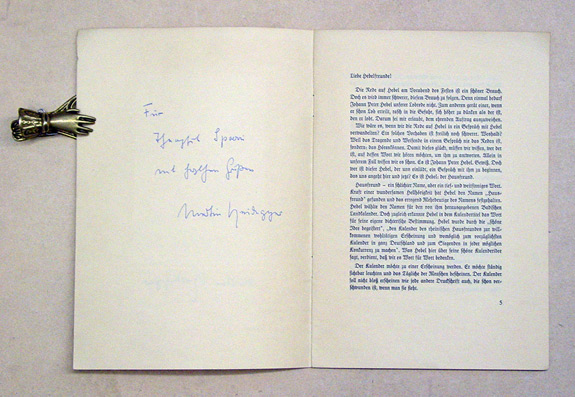 Für
Theophil Spoerri
mit herzlichen Grüßen
Martin Heidegger
Liebe Hebelfreunde!
Die Rede auf Hebel am Vorabend des Festes ist ein schöner Brauch.
Doch es wird immer schwerer, diesem Brauch zu folgen. Denn einmal bedarf
Johann Peter Hebel unserer Lobrede nicht. Zum anderen gerät einer, wenn
er schon Lob erteilt, rasch in die Gefahr, sich höher zu dünken als der ist,
den er lobt. Darum sei mir erlaubt, dem ehrenden Auftrag auszuweichen.
Wie wäre es, wenn wir die Rede auf Hebel in ein Gespräch mit Hebel
verwandelten? Ein Vorhaben ist freilich noch schwerer. Weshalb?
Weil das Tragende und in einem Gespräch nie das Reden ist,
sondern: das Hörenkönnen. Damit dieses glückt, müssen wir wissen, wer der
ist, auf dessen Wort wir hören möchten, um ihm zu antworten. Allein in
unserem Fall wissen wir es schon. Es ist Johann Peter Hebel. Gewiß. Doch
wer ist dieser Hebel, der uns einlädt, ein Gespräch mit ihm zu beginnen,
das uns angeht hier und jetzt? Es ist Hebel: der Hausfreund.
Hausfreund – ein schlichter Name, aber ein tief- und weitsinniges Wort.
Kraft einer wunderbaren Hellhörigkeit hat Hebel den Namen „Haus-
freund“ gefunden und das erregend Mehrdeutige des Namens festgehalten.
Hebel wählte den Namen für den von ihm herausgegebenen Badischen
Landkalender. Doch zugleich erkannte Hebel in dem Kalendertitel das Wort
für seine eigene dichterische Bestimmung. Hebel wurde durch die „schöne
Idee begeistert“, „den Kalender des rheinischen Hausfreundes zur will-
kommenen wohltätigen Erscheinung und womöglich zum vorzüglichsten
Kalender in ganz Deutschland und zum Siegenden in jeder möglichen
Konkurrenz zu machen“. Was Hebel hier über seine schöne Kalenderidee
sagt, verdient, daß wir es Wort für Wort bedenken.
Der Kalender möchte zu einer Erscheinung werden. Er möchte ständig
sichtbar leuchten und das Tägliche der Menschen bescheinen. Der Kalender
soll nicht bloß erscheinen wie jede andere Druckschrift auch, die schon ver-
schwunden ist, wenn man sie sieht.
5